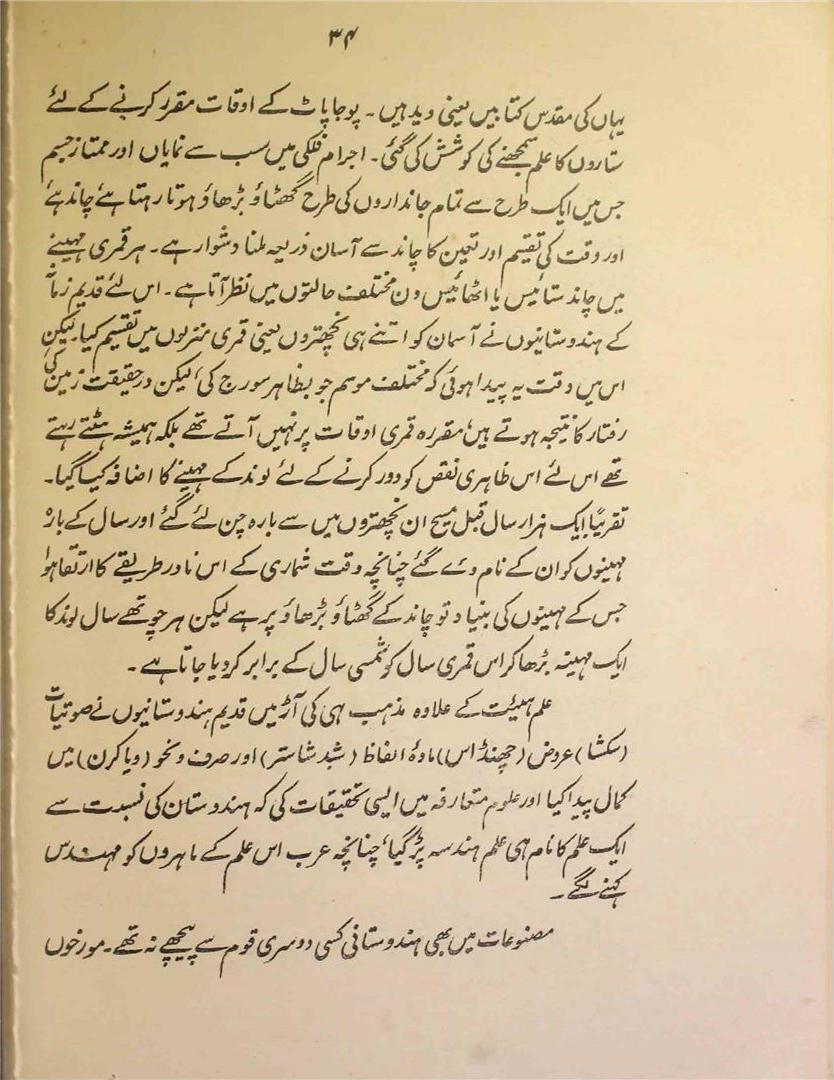 ۳۴
یہاں کی مقدس کتابیں یعنی وید ہیں۔ پوجا پاٹ کے اوقات مقرر کرنے کے لئے
ستاروں کا علم سمجھنے کی کوشش کی گئی۔ اجرام فلکی میں سب سے نمایاں اور ممتاز جسم
جس میں ایک طرح سے تمام جانداروں کی طرح گھٹاؤ بڑھاؤ ہوتا رہتا ہے چاند ہے
اور وقت کی تقسیم اور تعین کا چاند سے آسان ذریعہ ملنا دشوار ہے۔ ہر قمری مہینے
میں چاند ستائیس یا اٹھائیس دن مختلف حالتوں میں نظر آتا ہے۔ اس لئے قدیم زمانہ
کے ہندوستانیوں نے آسمان کو اتنے ہی نچھتروں یعنی قمری منزلوں میں تقسیم کیا۔ لیکن
اس میں دقت یہ پیدا ہوئی کہ مختلف موسم جو بظاہر سورج کی، لیکن درحقیقت زمین کی
رفتار کا نتیجہ ہوتے ہیں، مقررہ قمری اوقات پر نہیں آتے تھے بلکہ ہمیشہ ہٹتے رہتے
تھے اس لئے اس ظاہری نقص کو دور کرنے کے لئے لوند کے مہینے کا اضافہ کیا گیا۔
تقریباً ایک ہزار سال قبل مسیح ان نچھتروں میں سے بارہ چن لئے گئے اور سال کے بارہ
مہینوں کو ان کے نام دئے گئے چنانچہ وقت شماری کے اس نادر طریقے کا ارتقا ہوا
جس کے مہینوں کی بنیاد تو چاند کے گھٹاؤ بڑھاؤ پر ہے لیکن ہر چوتھے سال لوند کا
ایک مہینہ بڑھا کر اس قمری سال کو شمسی سال کے برابر کر دیا جاتا ہے۔
علم ہیئت کے علاوہ مذہب ہی کی آڑ میں قدیم ہندوستانیوں نے صوتیات
(سکشا) عروض (چھنڈاس) مادۂ الفاظ (شبد شاستر) اور صرف و نحو (ویاکرن) میں
کمال پیدا کیا اور علوم متعارفہ میں ایسی تحقیقات کی کہ ہندوستان کی نسبت سے
ایک علم کا نام ہی علم ہندسہ پڑ گیا، چنانچہ عرب اس علم کے ماہروں کو مہندس
کہنے لگے۔
مصنوعات میں بھی ہندوستانی کسی دوسری قوم سے پیچھے نہ تھے۔ مورخوں